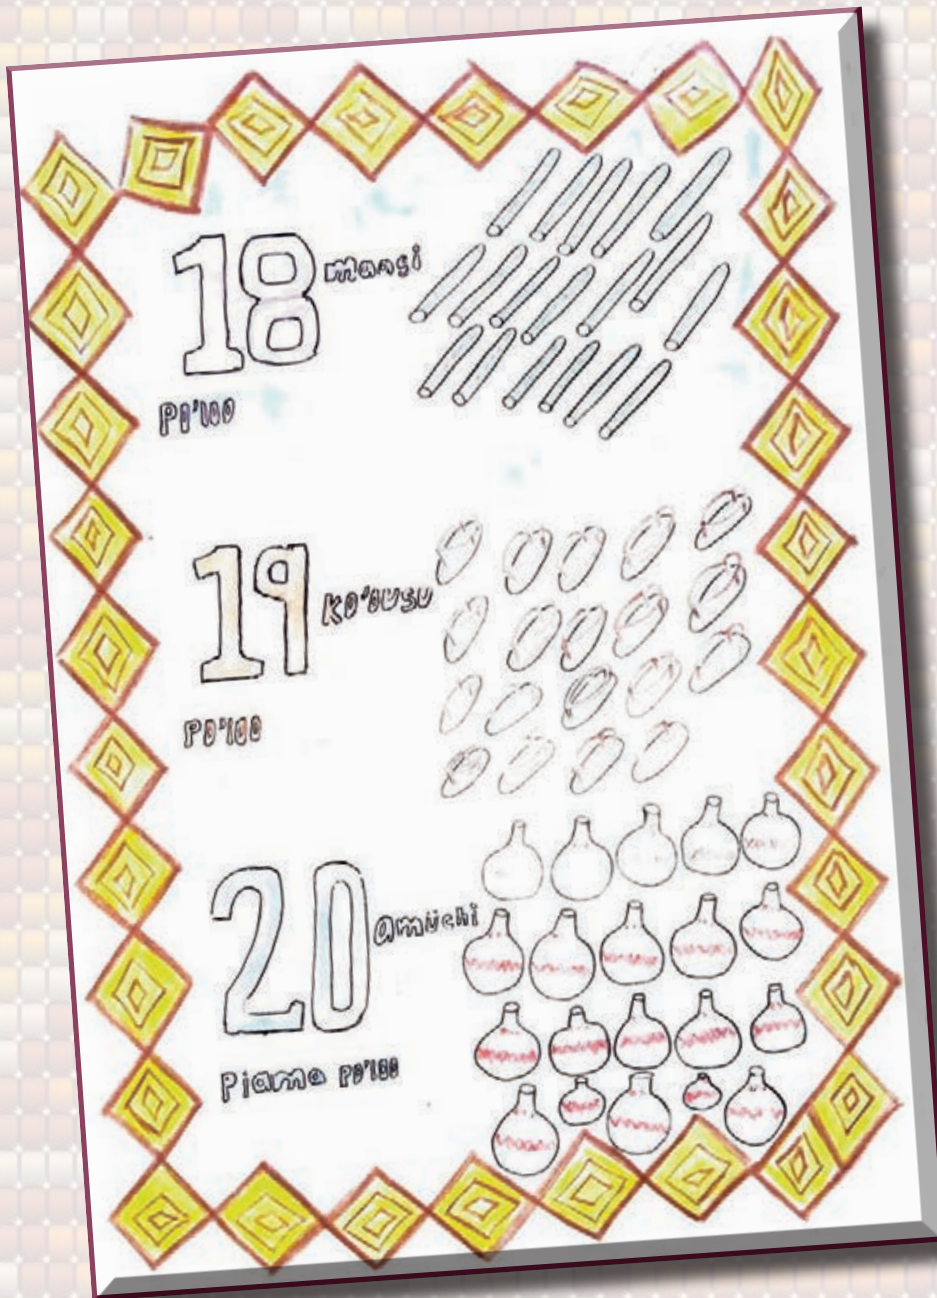 18 mansi
PO'LOO
19 KO'OUSU
PO'LOO
20 amüchi
Piama PO'LOO